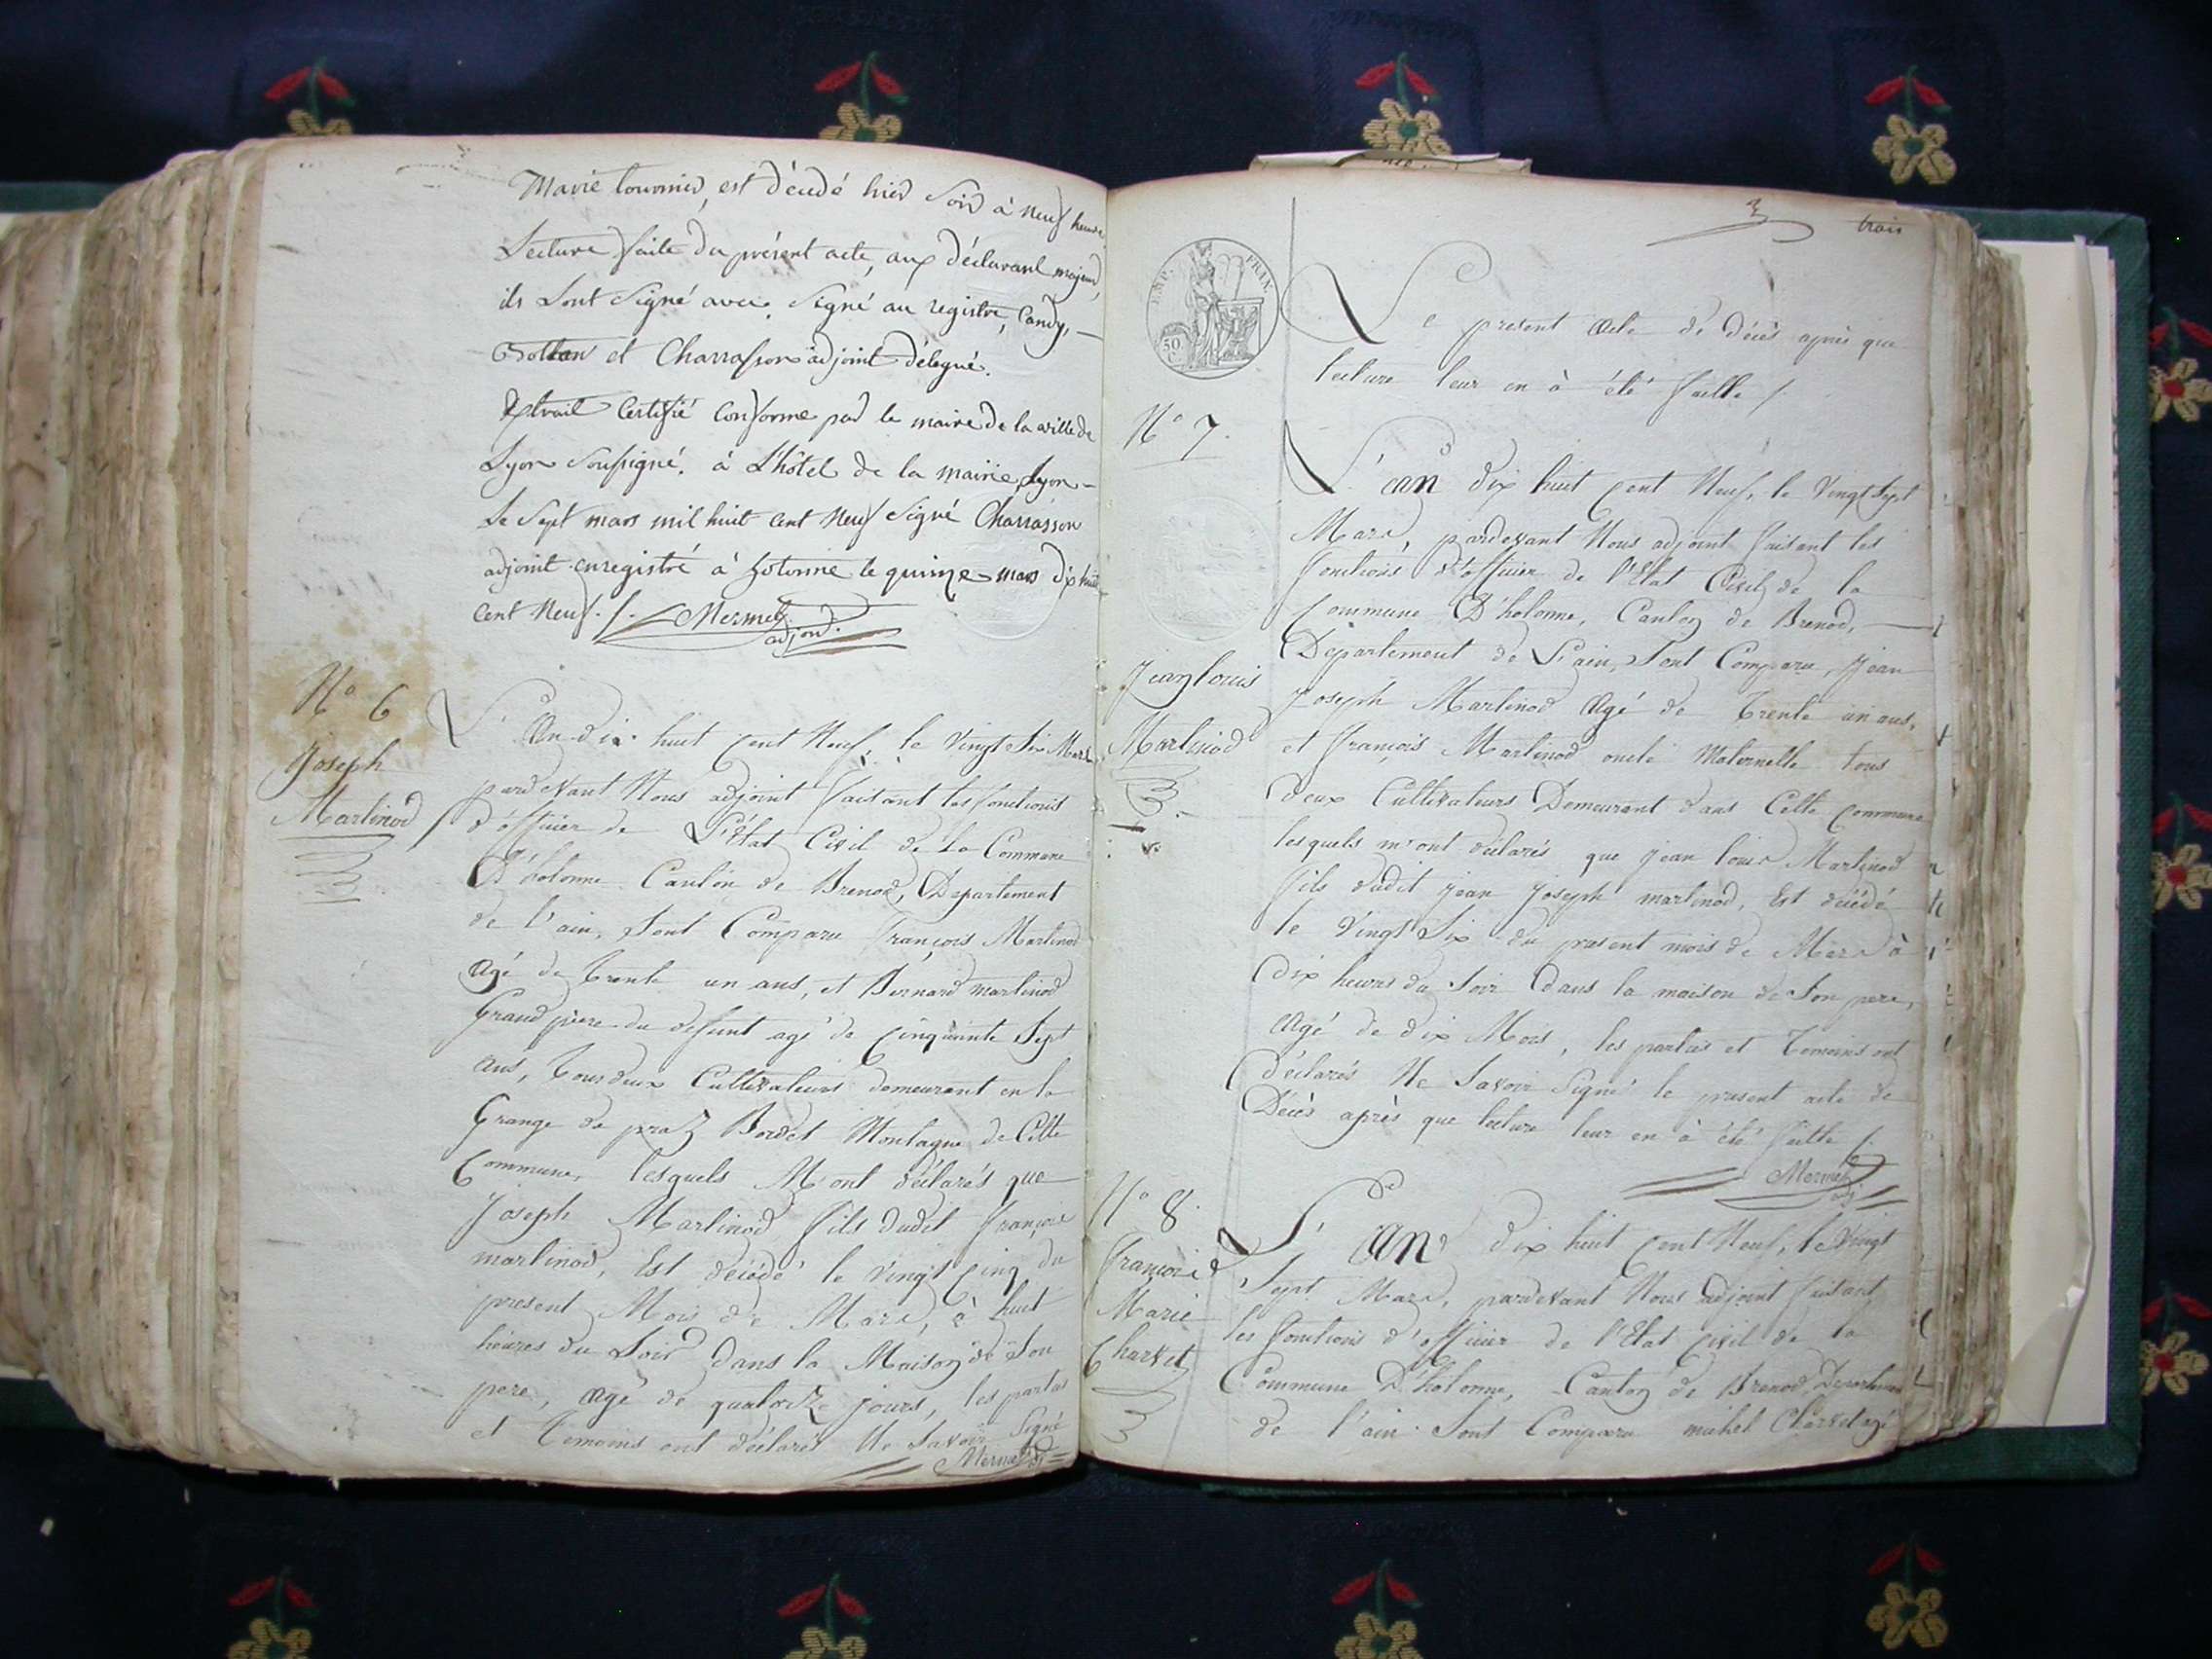 Marie tournier, est décédé hier Soir à neuf heures
Lecture faite du présent acte, aux déclarant majeurs
ils sont Signé avec. Signé au registre, Candy,
et Charrasson adjoint délégué.
Extrait Certifié Conforme par le maire de la ville de
Lyon Soussigné. à L'hôtel de la mairie, Lyon
Le Sept mars mil huit cent neuf Signé Charrasson
adjoint enregistré à hotonne le quinze mars dix huit
cent neuf. /. Mermet
adjoint.
N° 6
Joseph
Martinod
L'An dix huit Cent Neuf, le Vingt Six Mars
pardevant Nous adjoint faisant les fonctions
d'officier de L'Etat Civil de la Commune
D'hotonne Canton de Brenod, Département
de l'ain, Sont Comparu François Martinod
Agé de Trente un ans, et Bernard martinod
Grand père du defunt agé de Cinquante Sept
ans, Tous deux Cultivateurs demeurant en la
Grange de praz Bordet Montagne de Cette
Commune, lesquels M'ont déclarés que
Joseph Martinod fils dudit françois
martinod, Est décédé le Vingt Cinq du
present Mois de Mars, à huit
heures du Soir dans la Maison de Son
pere, agé de quatorze jours, les parties
et Temoins ont déclarés Ne Savoir Signé
Mermet adj
3 trois
EMP. FRAN.
50 C
Le présent Acte de Décès après que
lecture leur en à été faitte /.
N° 7.
Jean louis
Martinod
L'an dix huit Cent Neuf, le Vingt Sept
Mars, pardevant Nous adjoint faisant les
fonctions d'officier de l'Etat Civil de la
Commune D'hotonne, Canton de Brenod,
Département de L'ain, Sont Comparu, Jean
Joseph Martinod Agé de Trente un ans,
et françois Martinod oncle Maternelle tous
deux Cultivateurs Demeurant dans Cette Commune
lesquels m'ont déclarés que Jean louis Martinod
fils dudit Jean Joseph martinod, Est décédé
le Vingt Six du present mois de Mars à
Dix heures du Soir Dans la maison de Son pere,
Agé de dix Mois, les parties et Temoins ont
Déclarés Ne Savoir Signé le present acte de
Décès après que lecture leur en à été faitte /.
Mermet
adj
N° 8.
Marie
Charvet
L'an dix huit Cent Neuf, le Vingt
Sept Mars, pardevant Nous adjoint faisant
les fonctions d'officier de l'Etat Civil de la
Commune D'hotonne, Canton de Brenod, Departement
de l'ain. Sont Comparu michel Charvet agé